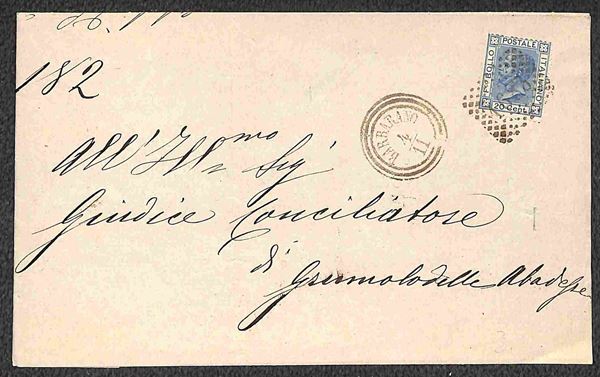 182
POSTALE
ITALIANO
BOLLO
20 Cent
BARBARANO
4
11
All' Ill mo Sig
Giudice Conciliatore
di
Grumolo delle Abadesse